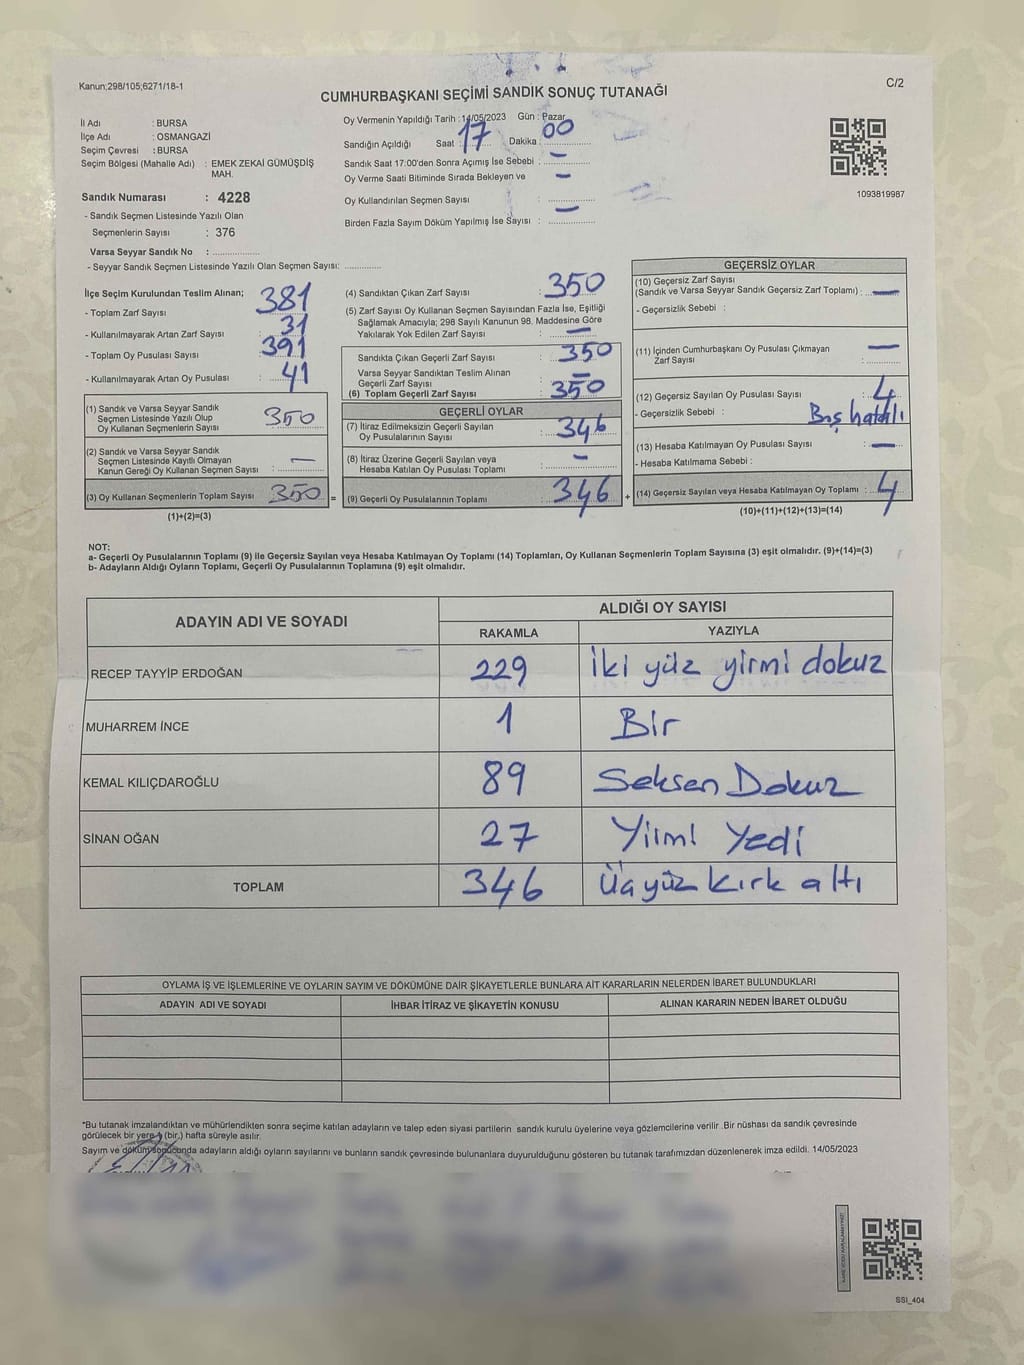 Kanun;298/105;6271/18-1
C/2
CUMHURBAŞKANI SEÇİMİ SANDIK SONUÇ TUTANAĞI
İl Adı : BURSA
İlçe Adı : OSMANGAZİ
Seçim Çevresi : BURSA
Seçim Bölgesi (Mahalle Adı) : EMEK ZEKAİ GÜMÜŞDİŞ
MAH.
Sandık Numarası : 4228
- Sandık Seçmen Listesinde Yazılı Olan
Seçmenlerin Sayısı : 376
Varsa Seyyar Sandık No : ................
- Seyyar Sandık Seçmen Listesinde Yazılı Olan Seçmen Sayısı: .............
Oy Vermenin Yapıldığı Tarih : 14/05/2023 Gün : Pazar
Sandığın Açıldığı Saat : 17 Dakika : 00
Sandık Saat 17:00'den Sonra Açımış İse Sebebi : —
Oy Verme Saati Bitiminde Sırada Bekleyen ve —
Oy Kullandırılan Seçmen Sayısı :
Birden Fazla Sayım Döküm Yapılmış İse Sayısı : —
1093819987
İlçe Seçim Kurulundan Teslim Alınan;
- Toplam Zarf Sayısı : 381
- Kullanılmayarak Artan Zarf Sayısı : 31
- Toplam Oy Pusulası Sayısı : 391
- Kullanılmayarak Artan Oy Pusulası : 41
(1) Sandık ve Varsa Seyyar Sandık
Seçmen Listesinde Yazılı Olup
Oy Kullanan Seçmenlerin Sayısı : 350
(2) Sandık ve Varsa Seyyar Sandık
Seçmen Listesinde Kayıtlı Olmayan
Kanun Gereği Oy Kullanan Seçmen Sayısı : —
(3) Oy Kullanan Seçmenlerin Toplam Sayısı : 350 =
(1)+(2)=(3)
(4) Sandıktan Çıkan Zarf Sayısı : 350
(5) Zarf Sayısı Oy Kullanan Seçmen Sayısından Fazla İse, Eşitliği
Sağlamak Amacıyla; 298 Sayılı Kanunun 98. Maddesine Göre
Yakılarak Yok Edilen Zarf Sayısı : —
Sandıkta Çıkan Geçerli Zarf Sayısı : 350
Varsa Seyyar Sandıktan Teslim Alınan
Geçerli Zarf Sayısı : —
(6) Toplam Geçerli Zarf Sayısı : 350
GEÇERLİ OYLAR
(7) İtiraz Edilmeksizin Geçerli Sayılan
Oy Pusulalarının Sayısı : 346
(8) İtiraz Üzerine Geçerli Sayılan veya
Hesaba Katılan Oy Pusulası Toplamı : —
(9) Geçerli Oy Pusulalarının Toplamı : 346 +
GEÇERSİZ OYLAR
(10) Geçersiz Zarf Sayısı
(Sandık ve Varsa Seyyar Sandık Geçersiz Zarf Toplamı) : —
- Geçersizlik Sebebi :
(11) İçinden Cumhurbaşkanı Oy Pusulası Çıkmayan —
Zarf Sayısı :
(12) Geçersiz Sayılan Oy Pusulası Sayısı : 4
- Geçersizlik Sebebi : Boş hatalı
(13) Hesaba Katılmayan Oy Pusulası Sayısı : —
- Hesaba Katılmama Sebebi :
(14) Geçersiz Sayılan veya Hesaba Katılmayan Oy Toplamı : 4
(10)+(11)+(12)+(13)=(14)
NOT:
a- Geçerli Oy Pusulalarının Toplamı (9) ile Geçersiz Sayılan veya Hesaba Katılmayan Oy Toplamı (14) Toplamları, Oy Kullanan Seçmenlerin Toplam Sayısına (3) eşit olmalıdır. (9)+(14)=(3)
b- Adayların Aldığı Oyların Toplamı, Geçerli Oy Pusulalarının Toplamına (9) eşit olmalıdır.
ADAYIN ADI VE SOYADI ALDIĞI OY SAYISI
RAKAMLA YAZIYLA
RECEP TAYYİP ERDOĞAN 229 iki yüz yirmi dokuz
MUHARREM İNCE 1 Bir
KEMAL KILIÇDAROĞLU 89 Seksen Dokuz
SİNAN OĞAN 27 Yirmi Yedi
TOPLAM 346 Üçyüz kırk altı
OYLAMA İŞ VE İŞLEMLERİNE VE OYLARIN SAYIM VE DÖKÜMÜNE DAİR ŞİKAYETLERLE BUNLARA AİT KARARLARIN NELERDEN İBARET BULUNDUKLARI
ADAYIN ADI VE SOYADI İHBAR İTİRAZ VE ŞİKAYETİN KONUSU ALINAN KARARIN NEDEN İBARET OLDUĞU
*Bu tutanak imzalandıktan ve mühürlendikten sonra seçime katılan adayların ve talep eden siyasi partilerin sandık kurulu üyelerine veya gözlemcilerine verilir .Bir nüshası da sandık çevresinde
görülecek bir yere 1 (bir.) hafta süreyle asılır.
Sayım ve döküm sonucunda adayların aldığı oyların sayılarını ve bunların sandık çevresinde bulunanlara duyurulduğunu gösteren bu tutanak tarafımızdan düzenlenerek imza edildi. 14/05/2023
SSI_404